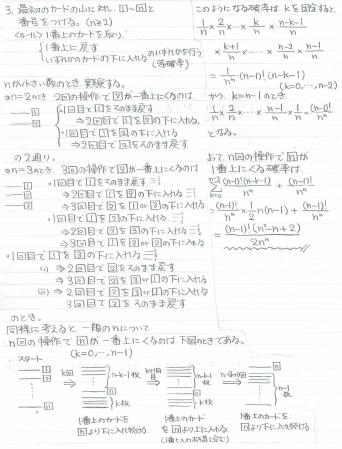 3. 最初のカードの山に対し, 1~nと
番号をつける。(n≧2)
<ルール> 1番上のカードを取り,
1番上に戻す
いずれかのカードの下に入れる のいずれかを行う
(各確率)
nが小さい数のとき, 実験する。
・n=2のとき 2回の操作で2が一番上にくるのは
1回目で1をそのまま戻す
⇒2回目で1を2の下に入れる.
1回目で1を2の下に入れる
⇒2回目で2をそのまま戻す
の2通り。
・n=3のとき. 3回の操作で3が一番上にくるのは
・1回目で1をそのまま戻す
⇒2回目で1を3の下に入れる
⇒3回目で2を3 or 1の下に入れる
・1回目で1を2の下に入れる.
⇒2回目で2を3の下に入れる
⇒3回目で1を3 or 2の下に入れる
・1回目で1を3の下に入れる
(i) ⇒2回目で2をそのまま戻す
⇒3回目で2を3 or 1の下に入れる
(ii) ⇒2回目で2を3 or 1の下に入れる
3回目で3をそのまま戻す
のとき。
同様に考えると, 一般のnについて
n回の操作でnが一番上にくるのは下図のときである。
(k=0,…,n-1)
スタート
1
2
n
k回
n-k-1枚
n
k枚
n-k-1枚
n
k枚
n
n-1枚
1番上のカードを
nより下に入れ続ける.
1番上のカード
をnより上に入れる.
1番上のカードを
nより下に入れ続ける
このようになる確率は kを固定すると,
1/n × 2/n × … × k/n × (n-k-1)/n
× (k+1)/n × … × (n-2)/n × (n-1)/n
= 1/n^n ・(n-1)!(n-k-1)
(k=0,…,n-2)
かつ, k=n-1のとき.
1/n × 2/n × … × (n-1)/n × 1/n = (n-1)!/n^n
となる。
よって, n回の操作でnが
1番上にくる確率は.
Σ[k=0, n-2] (n-1)!(n-k-1)/n^n + (n-1)!/n^n
= (n-1)!/n^n × 1/2 n(n-1) + (n-1)!/n^n
= (n-1)!(n²-n+2)/2n^n